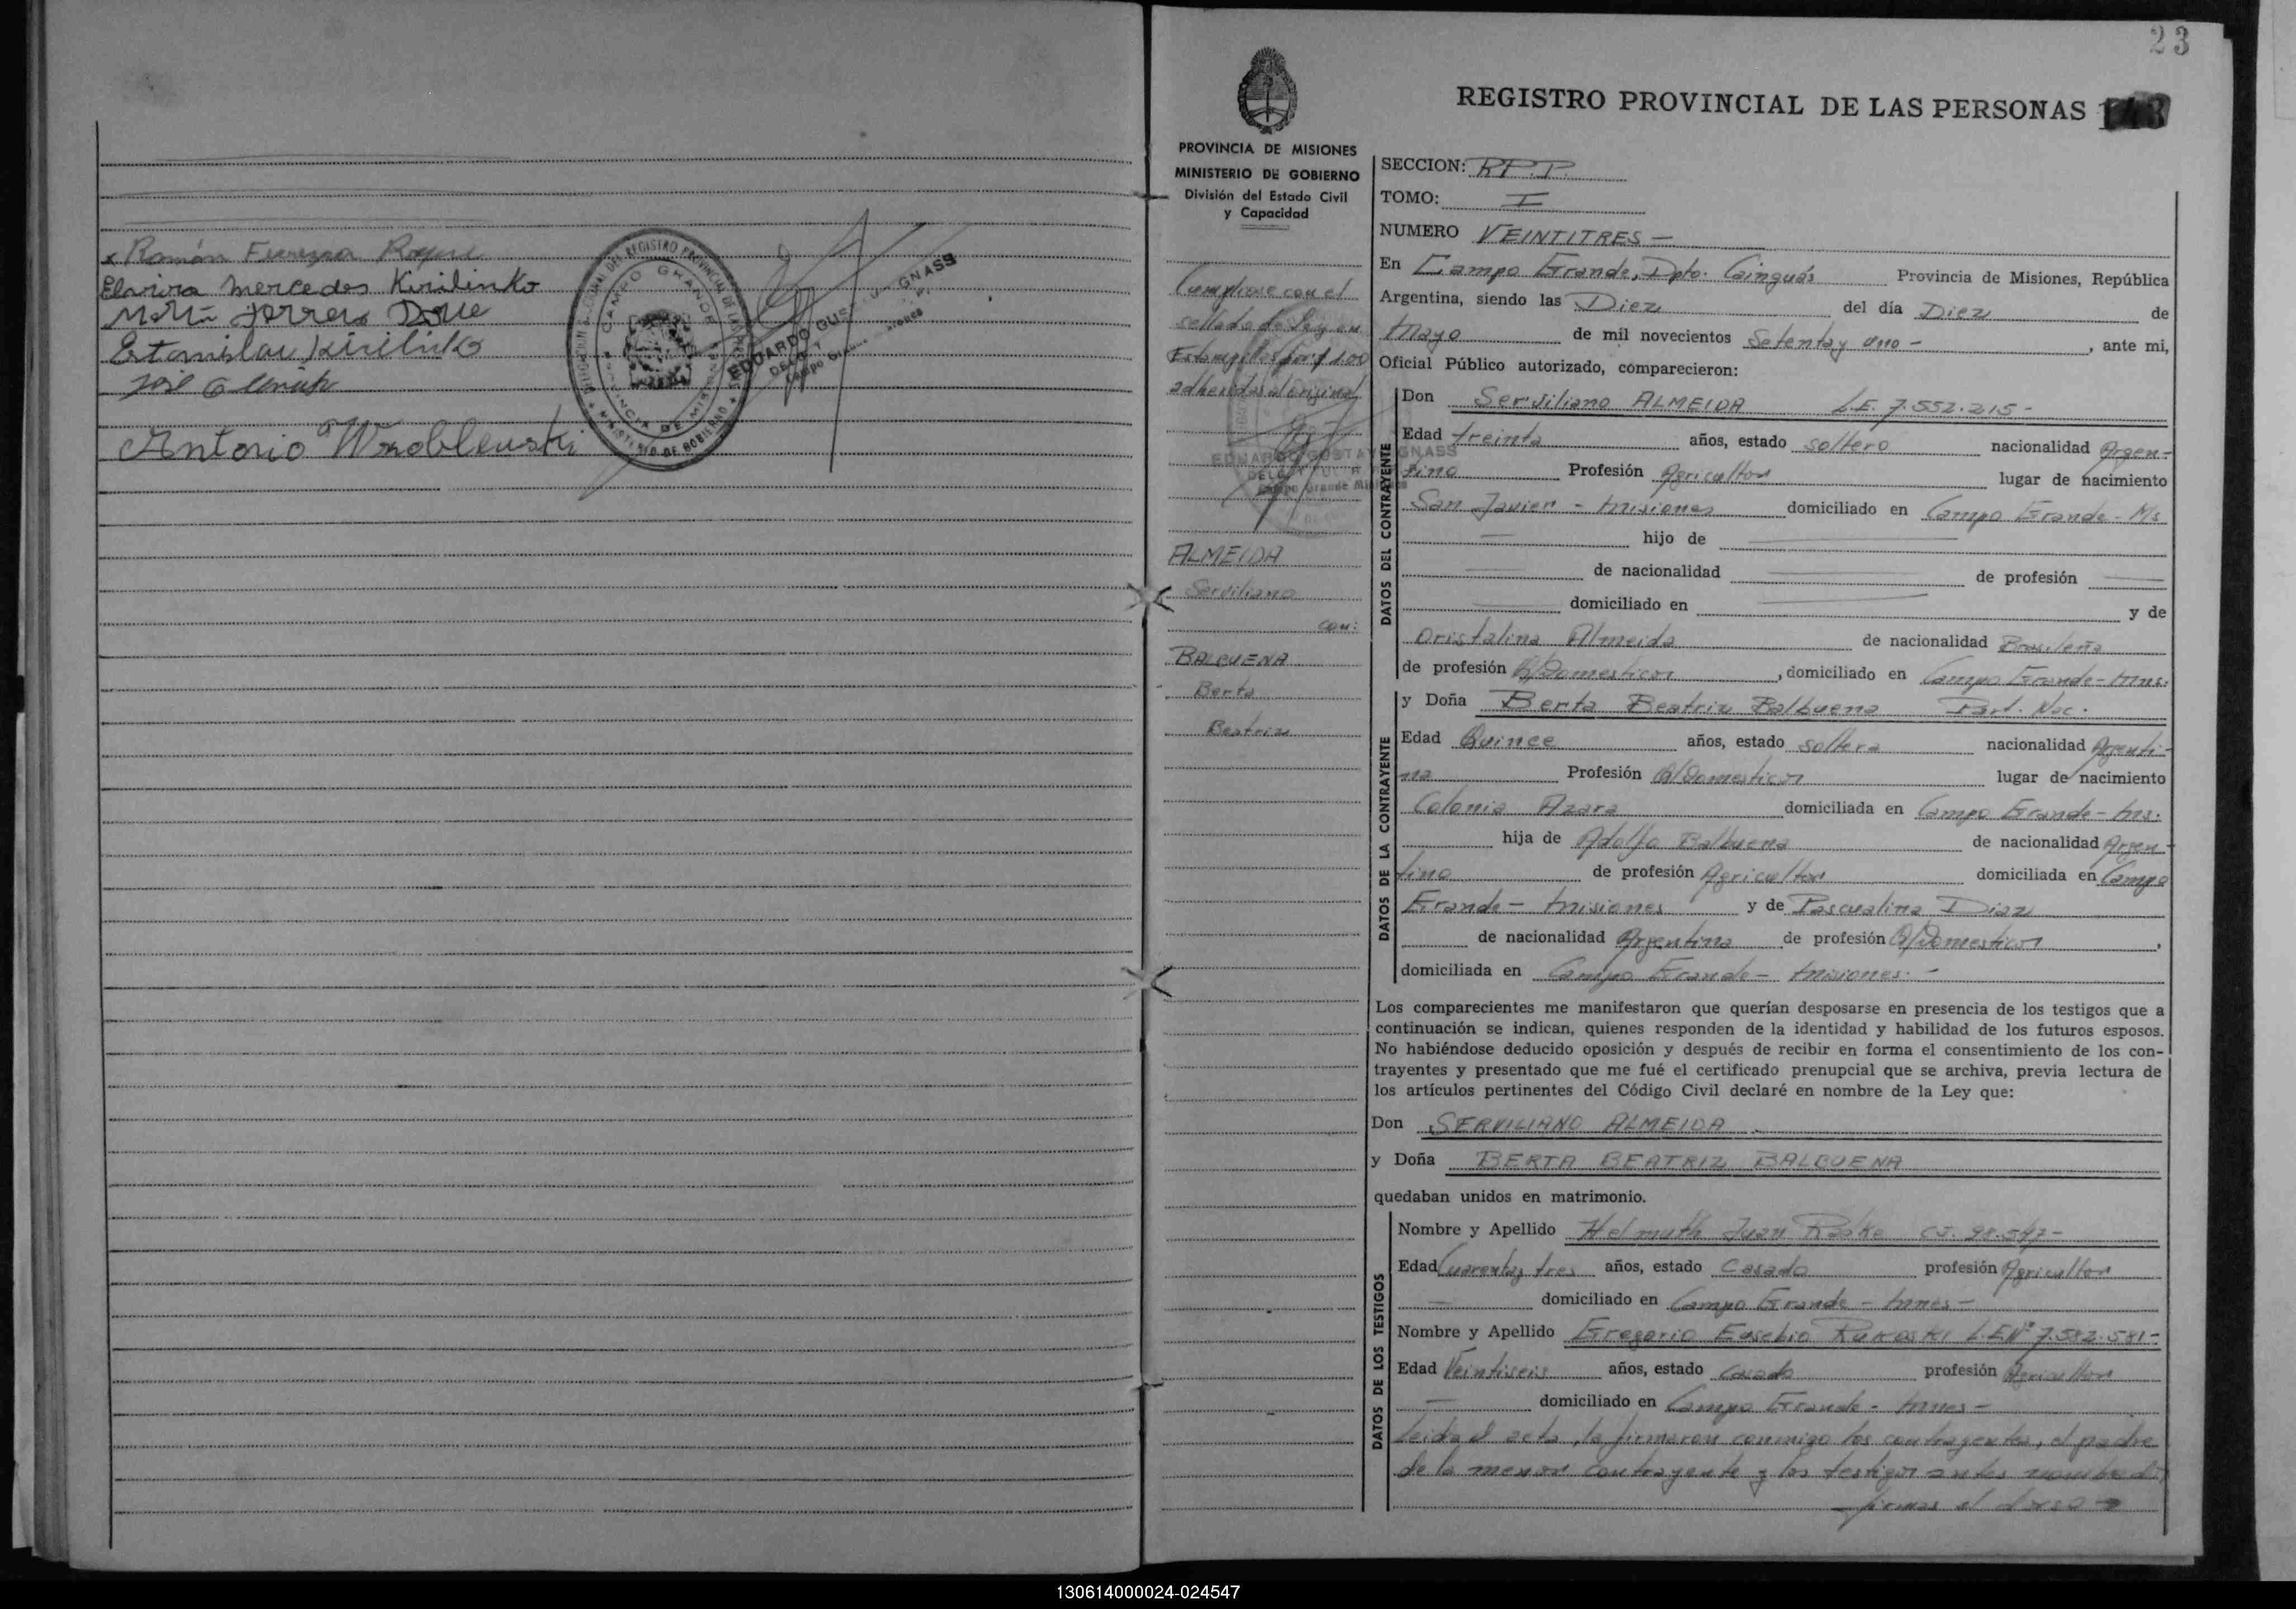 x Ramón Roque
Elavira Mercedes Kirilinko
Estanislau Kirilinko
José
Antonio Wroblewski
REGISTRO PROVINCIAL DE LAS
CAMPO GRANDE
MINISTERIO DE GOBIERNO
EDUARDO GUS GNASS
Campo
23
REGISTRO PROVINCIAL DE LAS PERSONAS
PROVINCIA DE MISIONES
MINISTERIO DE GOBIERNO
División del Estado Civil
y Capacidad
Cumplrose con el
sellado de Ley en
Estampillas por $ 1.00
adheridas al original
EDUARDO GUSTAVO GNASS
Campo Grande Misiones
ALMEIDA
Serviliano
con:
BALBUENA
Berta
Beatriz
SECCION: R.P.P.
TOMO: I
NUMERO VEINTITRES —
En Campo Grande, Dpto. Cainguás Provincia de Misiones, República
Argentina, siendo las Diez del día Diez de
Mayo de mil novecientos Setenta y uno - , ante mi,
Oficial Público autorizado, comparecieron:
DATOS DEL CONTRAYENTE
Don Serviliano ALMEIDA L.E. 7.552.215 -
Edad treinta años, estado soltero nacionalidad Argen-
tino Profesión Agricultor lugar de nacimiento
San Javier - Misiones domiciliado en Campo Grande - Ms
— hijo de —
— de nacionalidad — de profesión —
— domiciliado en — y de
Oristalina Almeida de nacionalidad Brasileña
de profesión Q/Domesticos , domiciliado en Campo Grande - Mnes.
DATOS DE LA CONTRAYENTE
y Doña Berta Beatriz Balbuena Part. Nac.
Edad Quince años, estado soltera nacionalidad Argenti-
na Profesión Q/Domesticos lugar de nacimiento
Colonia Azara domiciliada en Campo Grande - Mns.
hija de Adolfo Balbuena de nacionalidad Argen-
tino de profesión Agricultor domiciliada en Campo
Grande - Misiones y de Pascualina Diaz
de nacionalidad Argentina de profesión Q/Domesticos ,
domiciliada en Campo Grande - Misiones. -
Los comparecientes me manifestaron que querían desposarse en presencia de los testigos que a
continuación se indican, quienes responden de la identidad y habilidad de los futuros esposos.
No habiéndose deducido oposición y después de recibir en forma el consentimiento de los con-
trayentes y presentado que me fué el certificado prenupcial que se archiva, previa lectura de
los artículos pertinentes del Código Civil declaré en nombre de la Ley que:
Don SERVILIANO ALMEIDA
y Doña BERTA BEATRIZ BALBUENA
quedaban unidos en matrimonio.
DATOS DE LOS TESTIGOS
Nombre y Apellido Helmuth Juan Raske C.I. 98.547 -
Edad Cuarenta y tres años, estado Casado profesión Agricultor
— domiciliado en Campo Grande - Mnes -
Nombre y Apellido Gregorio Eusebio Rukoski L.E Nº 7.582.581 -
Edad Veintiseis años, estado casado profesión Agricultor
— domiciliado en Campo Grande - Mnes -
Leida el acta, la firmaron conmigo los contrayentes, el padre
de la menor contrayente y los testigos antes nombrados
firmas al dorso
130614000024-024547